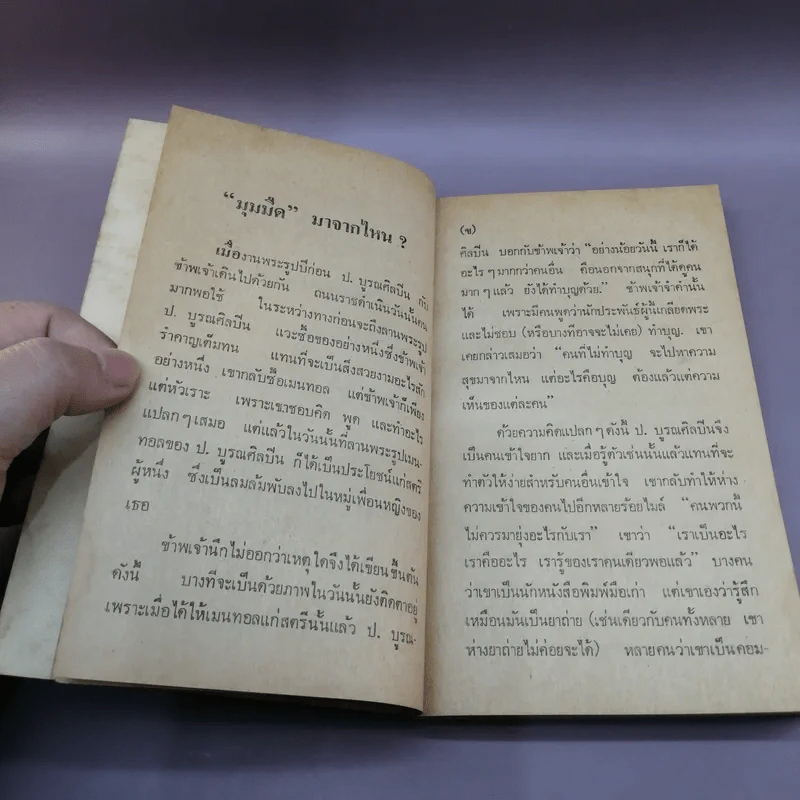 “มุมมืด” มาจากไหน ?
เมื่องานพระรูปปีก่อน ป. บูรณศิลปิน กับ
ข้าพเจ้าเดินไปด้วยกัน ถนนราชดำเนินวันนั้นคน
มากพอใช้ ในระหว่างทางก่อนจะถึงลานพระรูป
ป. บูรณศิลปิน แวะซื้อของอย่างหนึ่งซึ่งข้าพเจ้า
รำคาญเต็มทน แทนที่จะเป็นสิ่งสวยงามอะไรสัก
อย่างหนึ่ง เขากลับซื้อเมนทอล แต่ข้าพเจ้าก็เพียง
แต่หัวเราะ เพราะเขาชอบคิด พูด และทำอะไร
แปลกๆเสมอ แต่แล้วในวันนั้นที่ลานพระรูปเมน-
ทอลของ ป. บูรณศิลปิน ก็ได้เป็นประโยชน์แก่สตรี
ผู้หนึ่ง ซึ่งเป็นลมล้มพับลงไปในหมู่เพื่อนหญิงของ
เธอ
ข้าพเจ้านึกไม่ออกว่าเหตุใดจึงได้เขียนขึ้นต้น
ดังนี้ บางทีจะเป็นด้วยภาพในวันนั้นยังติดตาอยู่
เพราะเมื่อได้ให้เมนทอลแก่สตรีนั้นแล้ว ป. บูรณ-
(ช)
ศิลปิน บอกกับข้าพเจ้าว่า “อย่างน้อยวันนี้ เราก็ได้
อะไรๆมากกว่าคนอื่น คือนอกจากสนุกที่ได้ดูคน
มากๆแล้ว ยังได้ทำบุญด้วย.” ข้าพเจ้าจำคำนั้น
ได้ เพราะมีคนพูดว่านักประพันธ์ผู้นี้เกลียดพระ
และไม่ชอบ (หรือบางทีอาจจะไม่เคย) ทำบุญ. เขา
เคยกล่าวเสมอว่า “คนที่ไม่ทำบุญ จะไปหาความ
สุขมาจากไหน แต่อะไรคือบุญ ต้องแล้วแต่ความ
เห็นของแต่ละคน”
ด้วยความคิดแปลกๆดังนี้ ป. บูรณศิลปินจึง
เป็นคนเข้าใจยาก และเมื่อรู้ตัวเช่นนั้นแล้วแทนที่จะ
ทำตัวให้ง่ายสำหรับคนอื่นเข้าใจ เขากลับทำให้ห่าง
ความเข้าใจของคนไปอีกหลายร้อยไมล์ “คนพวกนี้
ไม่ควรมายุ่งอะไรกับเรา” เขาว่า “เราเป็นอะไร
เราคืออะไร เรารู้ของเราคนเดียวพอแล้ว” บางคน
ว่าเขาเป็นนักหนังสือพิมพ์มือเก่า แต่เขาเองว่ารู้สึก
เหมือนมันเป็นยาถ่าย (เช่นเดียวกับคนทั้งหลาย เขา
ห่างยาถ่ายไม่ค่อยจะได้) หลายคนว่าเขาเป็นคอม-